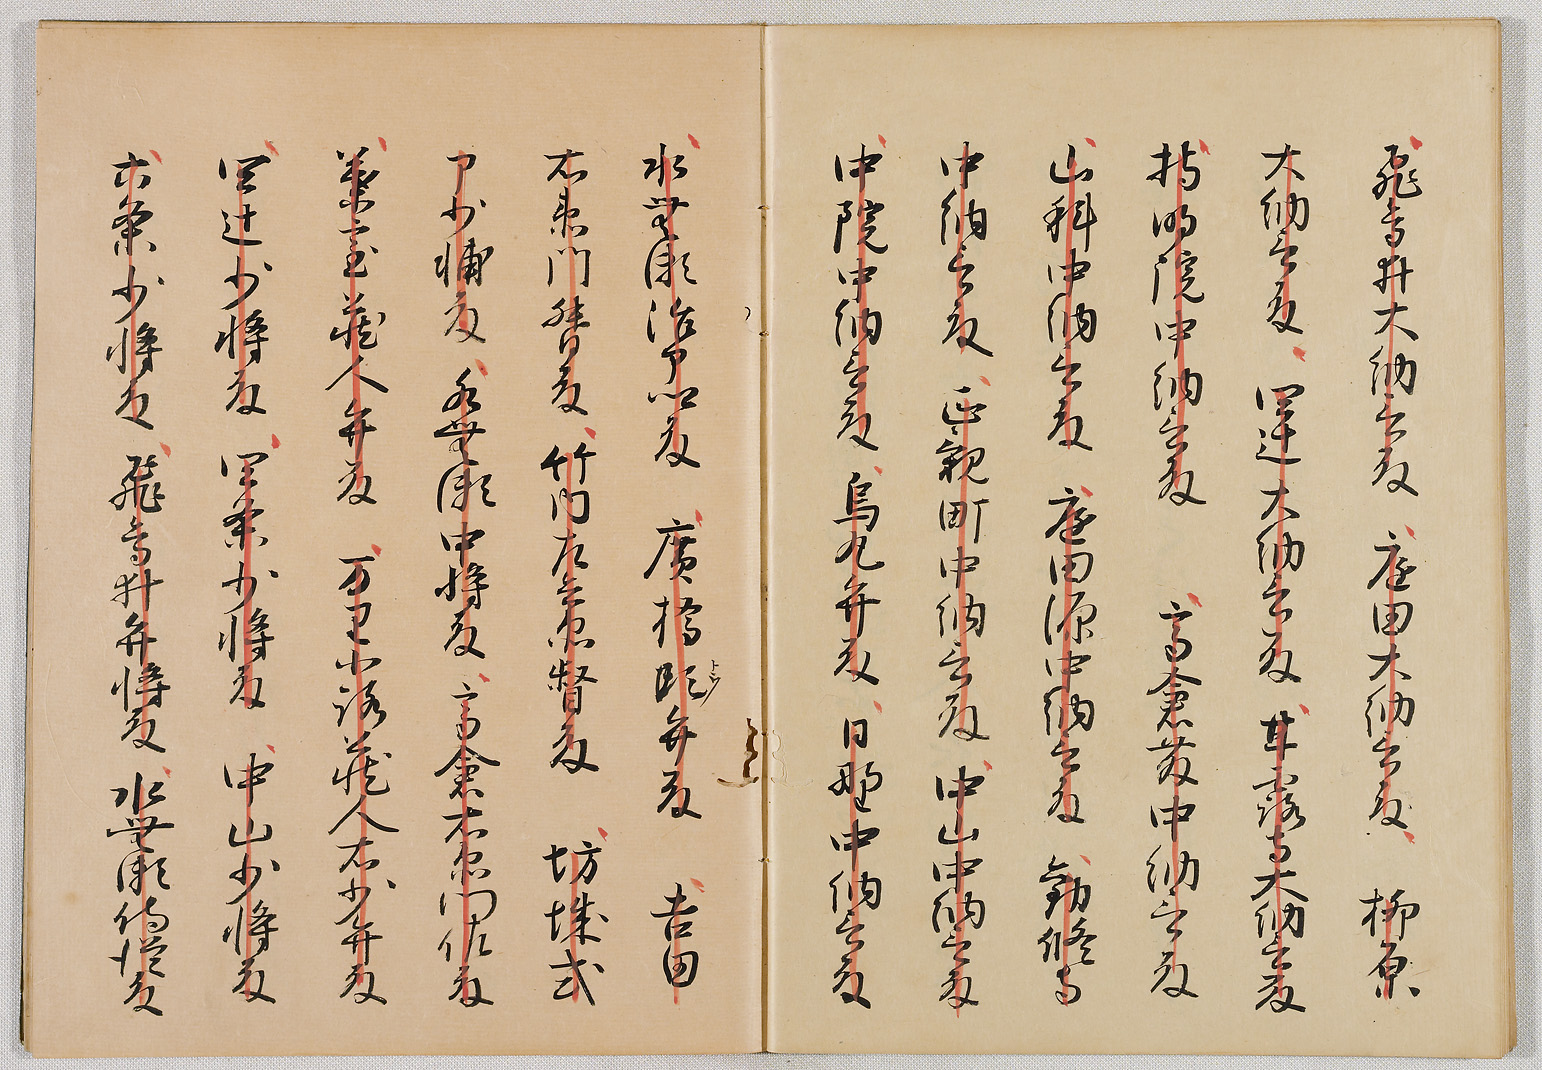 飛鳥井大納言殿 庭田大納言殿 柳原
大納言殿 四辻大納言殿 甘露寺大納言殿
持明院中納言殿 高倉藤中納言殿
山科中納言殿 庭田源中納言殿 勧修寺
中納言殿 正親町中納言殿 中山中納言殿
中院中納言殿 烏丸弁殿 日野中納言殿
水無瀬治部卿殿 廣橋頭弁殿 吉田
右衛門督殿 竹門左兵衛督殿 坊城式
部少輔殿 水無瀬中将殿 高倉右衛門佐殿
葉室蔵人弁殿 万里小路蔵人右少弁殿
四辻少将殿 四条少将殿 中山少将殿
六条少将殿 飛鳥井少将殿 水無瀬侍従殿